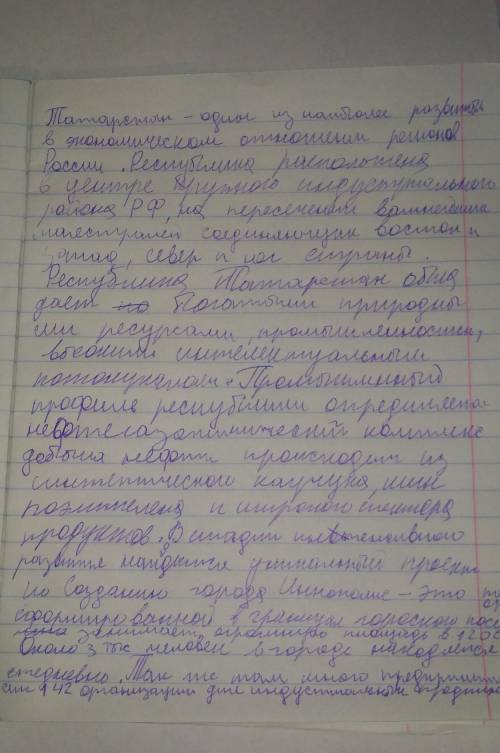 Татарстан - один из наиболее развитых
в экономическом отношении регионов
России. Республика расположена
в центре крупного индустриального
района РФ, на пересечении важнейших
магистралей соединяющих восток и
запад, север и юг страны.
Республика Татарстан обла
дает богатыми природны
ми ресурсами, промышленностью,
высоким интелектуальным
Промышленный
профиль республики определяется
нефтегазохимический комплекс
добыча нефти происходит из
синтетического каучука, шин
полиэтилена и широкого спектора
продуктов. В стадии
развития находится уникальный проект
по созданию города Иннополис - это
сформированной в границах городского посе
занимает огромную площадь в
Около 3 тыс человек в городе находятся
ежедневно. Так же там много предприят
142 организации для индустриальный